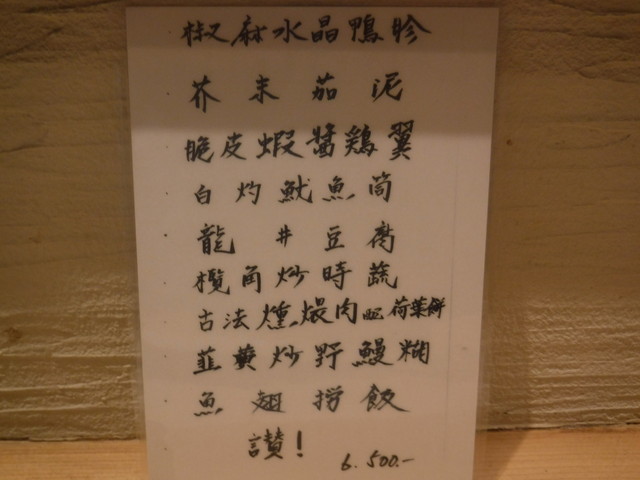 椒麻水晶鴨胗
芥末茄泥
脆皮蝦醬鶏翼
白灼魷魚筒
龍井豆腐
欖角炒時蔬
古法燻煨肉配荷葉餅
韮黄炒野鰻糊
魚翅撈飯
讃!
6.500.-